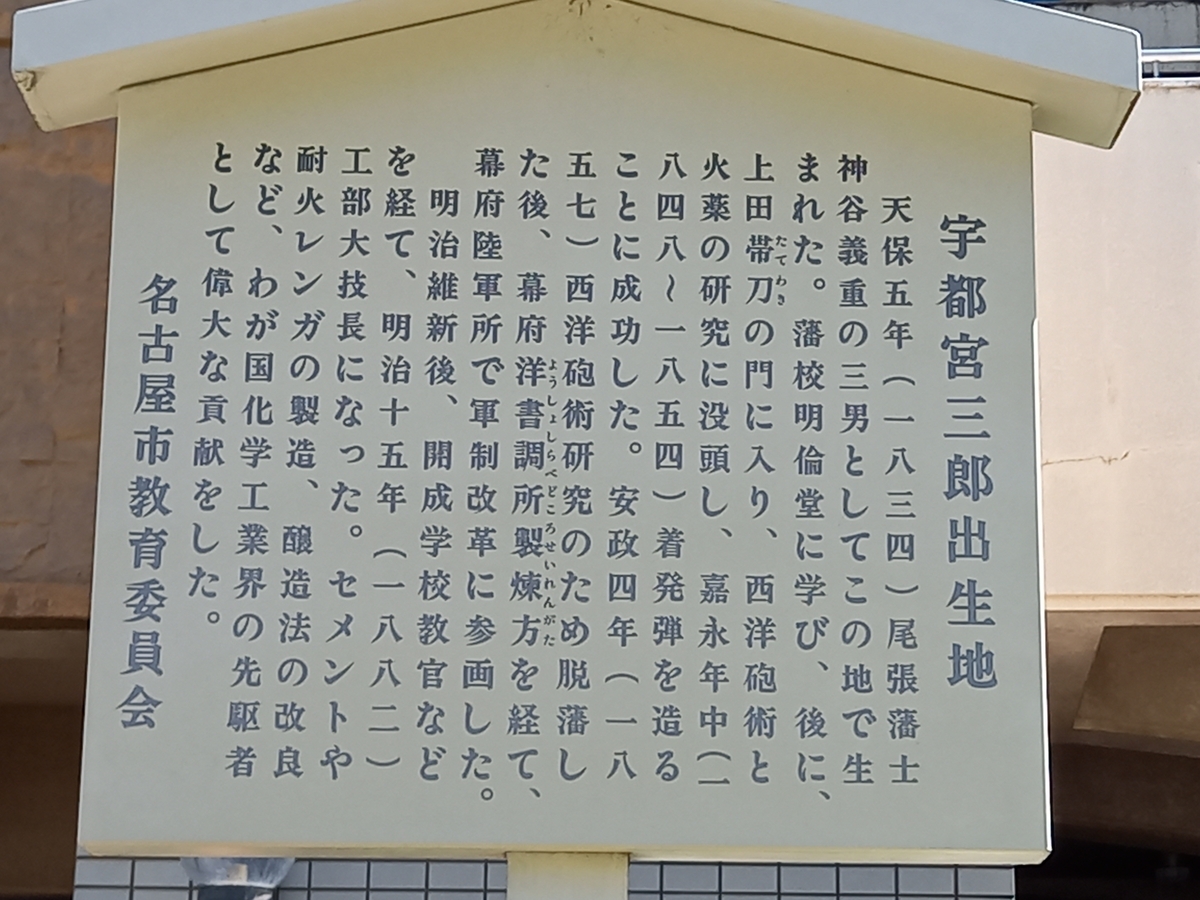 宇都宮三郎出生地
天保五年（一八三四）尾張藩士
神谷義重の三男としてこの地で生
まれた。藩校明倫堂に学び、後に、
上田帯刀の門に入り、西洋砲術と
たてわき
火薬の研究に没頭し、嘉永年中（一
八四八～一八五四）着発弾を造る
ことに成功した。安政四年（一八
五七）西洋砲術研究のため脱藩し
た後、幕府洋書調所製煉方を経て、
ようしょしらべどころせいれんがた
幕府陸軍所で軍制改革に参画した。
明治維新後、開成学校教官など
を経て、明治十五年（一八八二）
工部大技長になった。セメントや
耐火レンガの製造、醸造法の改良
など、わが国化学工業界の先駆者
として偉大な貢献をした。
名古屋市教育委員会